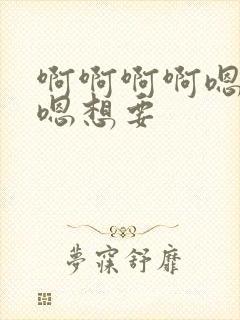 啊啊啊啊嗯
嗯想要
梦寐舒靡